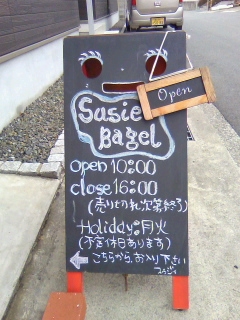 Open
Susie
Bagel
open 10:00
close 16:00
(売り切れ次第終了)
Holiday:月火
(不定休日あります)
こちらから、お入り下さい